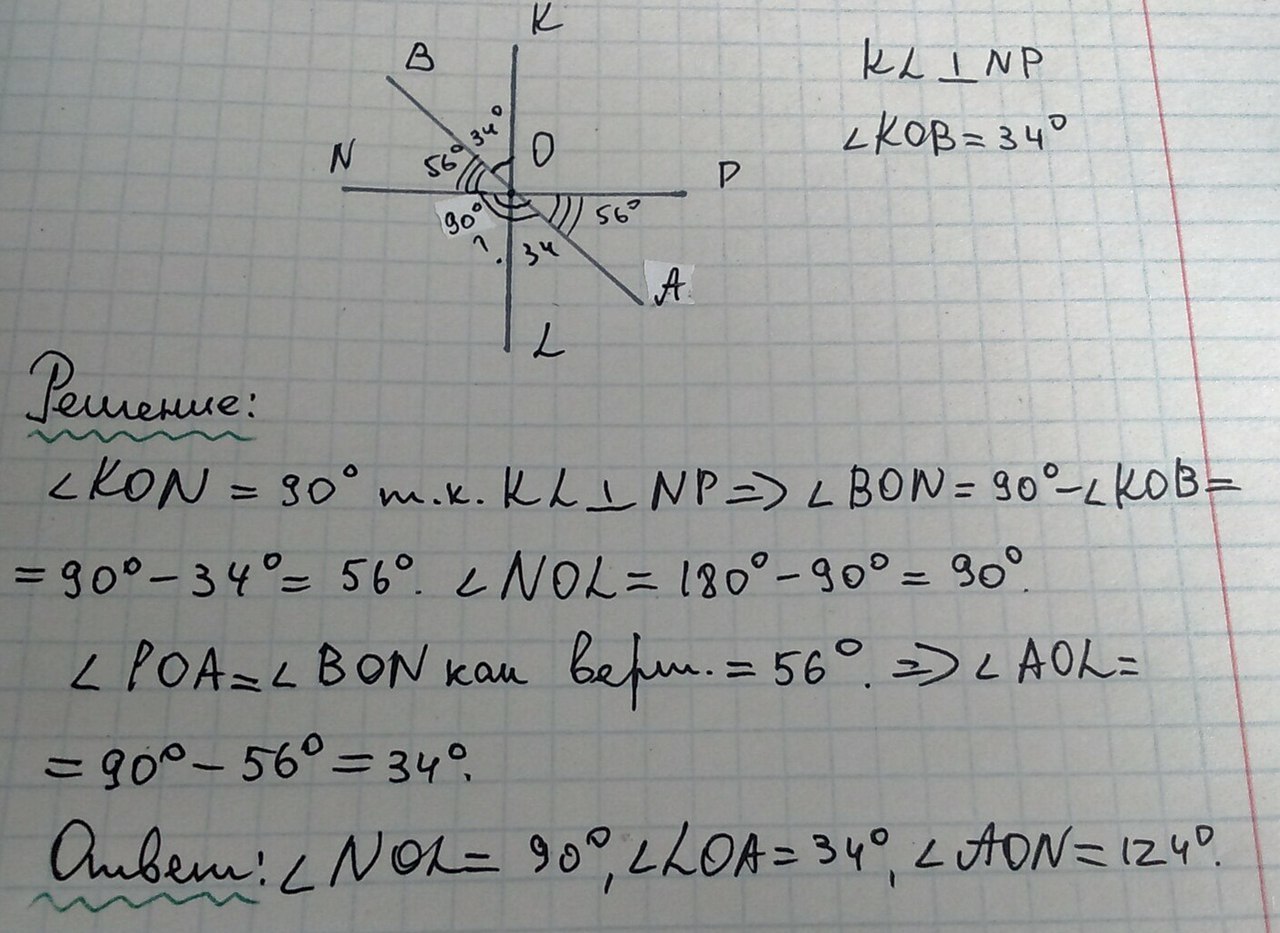 K
B
KL ⊥ NP
34°
O
∠KOB = 34°
N
56°
P
90°
56°
?
34
A
L
Решение:
∠KON = 90° т.к. KL ⊥ NP => ∠BON = 90° - ∠KOB =
= 90° - 34° = 56°. ∠NOL = 180° - 90° = 90°.
∠POA = ∠BON как верт. = 56°. => ∠AOL =
= 90° - 56° = 34°.
Ответ: ∠NOL = 90°, ∠LOA = 34°, ∠AON = 124°.